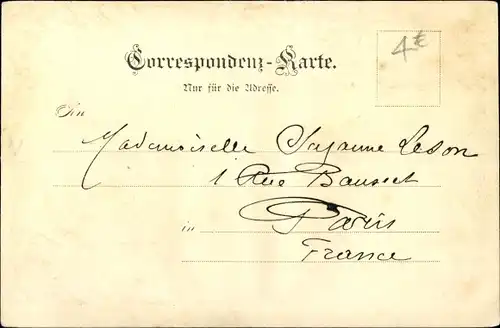 Correspondenz-Karte.
4€
Nur für die Adresse.
An
Mademoiselle Suzanne Leson
1 Rue Bausset
in Paris
France